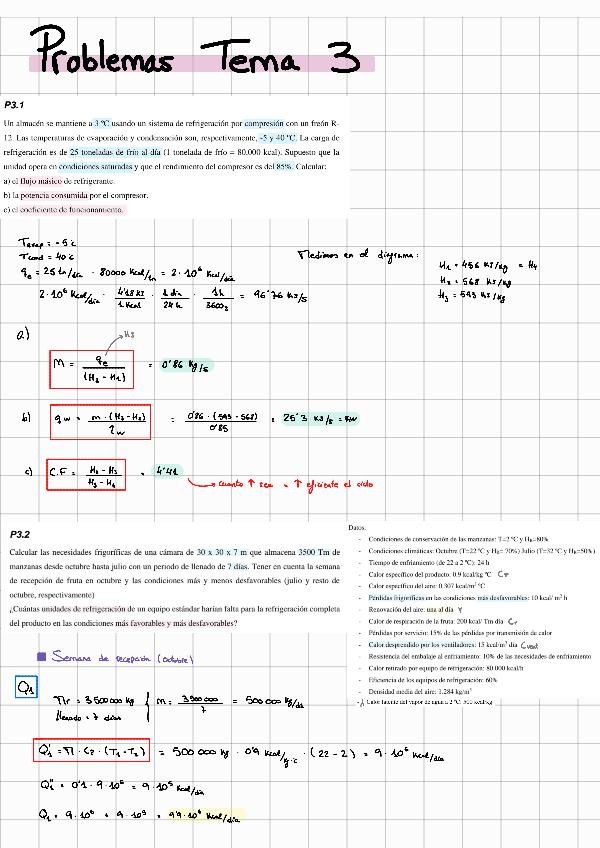 Problemas Tema 3
P3.1
Un almacén se mantiene a 3 ºC usando un sistema de refrigeración por compresión con un freón R-
12. Las temperaturas de evaporación y condensación son, respectivamente, -5 y 40 ºC. La carga de
refrigeración es de 25 toneladas de frío al día (1 tonelada de frío = 80.000 kcal). Supuesto que la
unidad opera en condiciones saturadas y que el rendimiento del compresor es del 85%. Calcular:
a) el flujo másico de refrigerante.
b) la potencia consumida por el compresor.
c) el coeficiente de funcionamiento.
Tevap = -5ºC
Tcond = 40ºC
qe = 25 tn/día · 80000 Kcal/tn = 2·10⁶ Kcal/día
2·10⁶ Kcal/día · 4'18 KJ / 1 Kcal · 1 día / 24 h · 1h / 3600s = 96'76 KJ/s
Medimos en el diagrama:
H1 = 456 KJ/kg = H4
H2 = 568 KJ/kg
H3 = 593 KJ/kg
a)
H3
M = qe / (H2 - H1) = 0'86 kg/s
b) qw = m·(H3-H2) / ηw = 0'86·(593-568) / 0'85 = 25'3 KJ/s = KW
c) C.F = H2-H1 / H3-H2 = 4'41
cuanto ↑ sea = ↑ eficiente el ciclo
P3.2
Calcular las necesidades frigoríficas de una cámara de 30 x 30 x 7 m que almacena 3500 Tm de
manzanas desde octubre hasta julio con un periodo de llenado de 7 días. Tener en cuenta la semana
de recepción de fruta en octubre y las condiciones más y menos desfavorables (julio y resto de
octubre, respectivamente)
¿Cuántas unidades de refrigeración de un equipo estándar harían falta para la refrigeración completa
del producto en las condiciones más favorables y más desfavorables?
Datos:
- Condiciones de conservación de las manzanas: T=2 ºC y HR=80%
- Condiciones climáticas: Octubre (T=22 ºC y HR= 70%) Julio (T=32 ºC y HR=50%)
- Tiempo de enfriamiento (de 22 a 2 ºC): 24 h
- Calor específico del producto: 0.9 kcal/kg ºC
- Calor específico del aire: 0.307 kcal/m³ ºC
- Pérdidas frigoríficas en las condiciones más desfavorables: 10 kcal/ m² h
- Renovación del aire: una al día
- Calor de respiración de la fruta: 200 kcal/ Tm día Cr
- Pérdidas por servicio: 15% de las pérdidas por transmisión de calor
- Calor desprendido por los ventiladores: 15 kcal/m³ día Cvent
- Resistencia del embalaje al enfriamiento: 10% de las necesidades de enfriamiento
- Calor retirado por equipo de refrigeración: 80.000 kcal/h
- Eficiencia de los equipos de refrigeración: 60%
- Densidad media del aire: 1.284 kg/m³
- Calor latente del vapor de agua a 2 ºC: 500 kcal/kg
Semana de recepción (octubre)
Q1
MT = 3500000 kg
llenado = 7 días
m = 3500000 / 7 = 500000 kg/día
Q1' = M · Cp · (T1-T2) = 500 000 kg · 0'9 Kcal/kg·ºC · (22-2) = 9·10⁶ Kcal/día
Q1'' = 0'1 · 9·10⁶ = 9·10⁵ Kcal/día
Q1 = 9·10⁶ + 9·10⁵ = 9'9·10⁶ Kcal/día